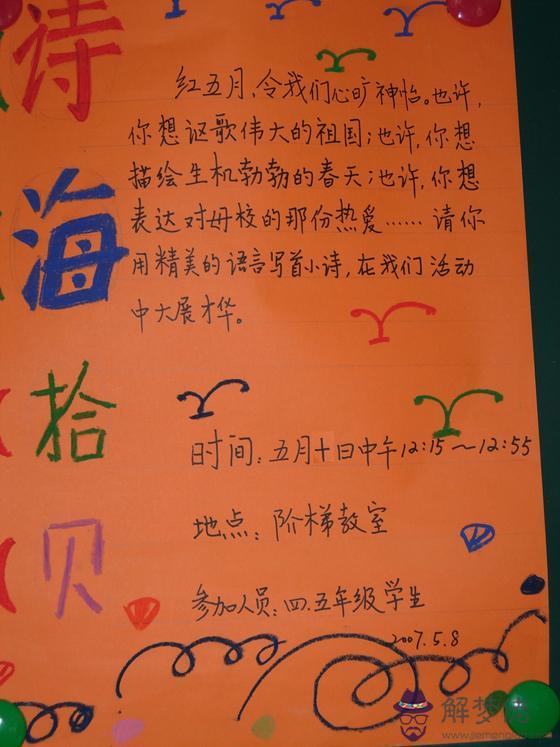 诗海拾贝
红五月,令我们心旷神怡。也许,
你想讴歌伟大的祖国;也许,你想
描绘生机勃勃的春天;也许,你想
表达对母校的那份热爱……请你
用精美的语言写首小诗,在我们活动
中大展才华。
时间:五月十日中午12:15~12:55
地点:阶梯教室
参加人员:四.五年级学生
2007.5.8